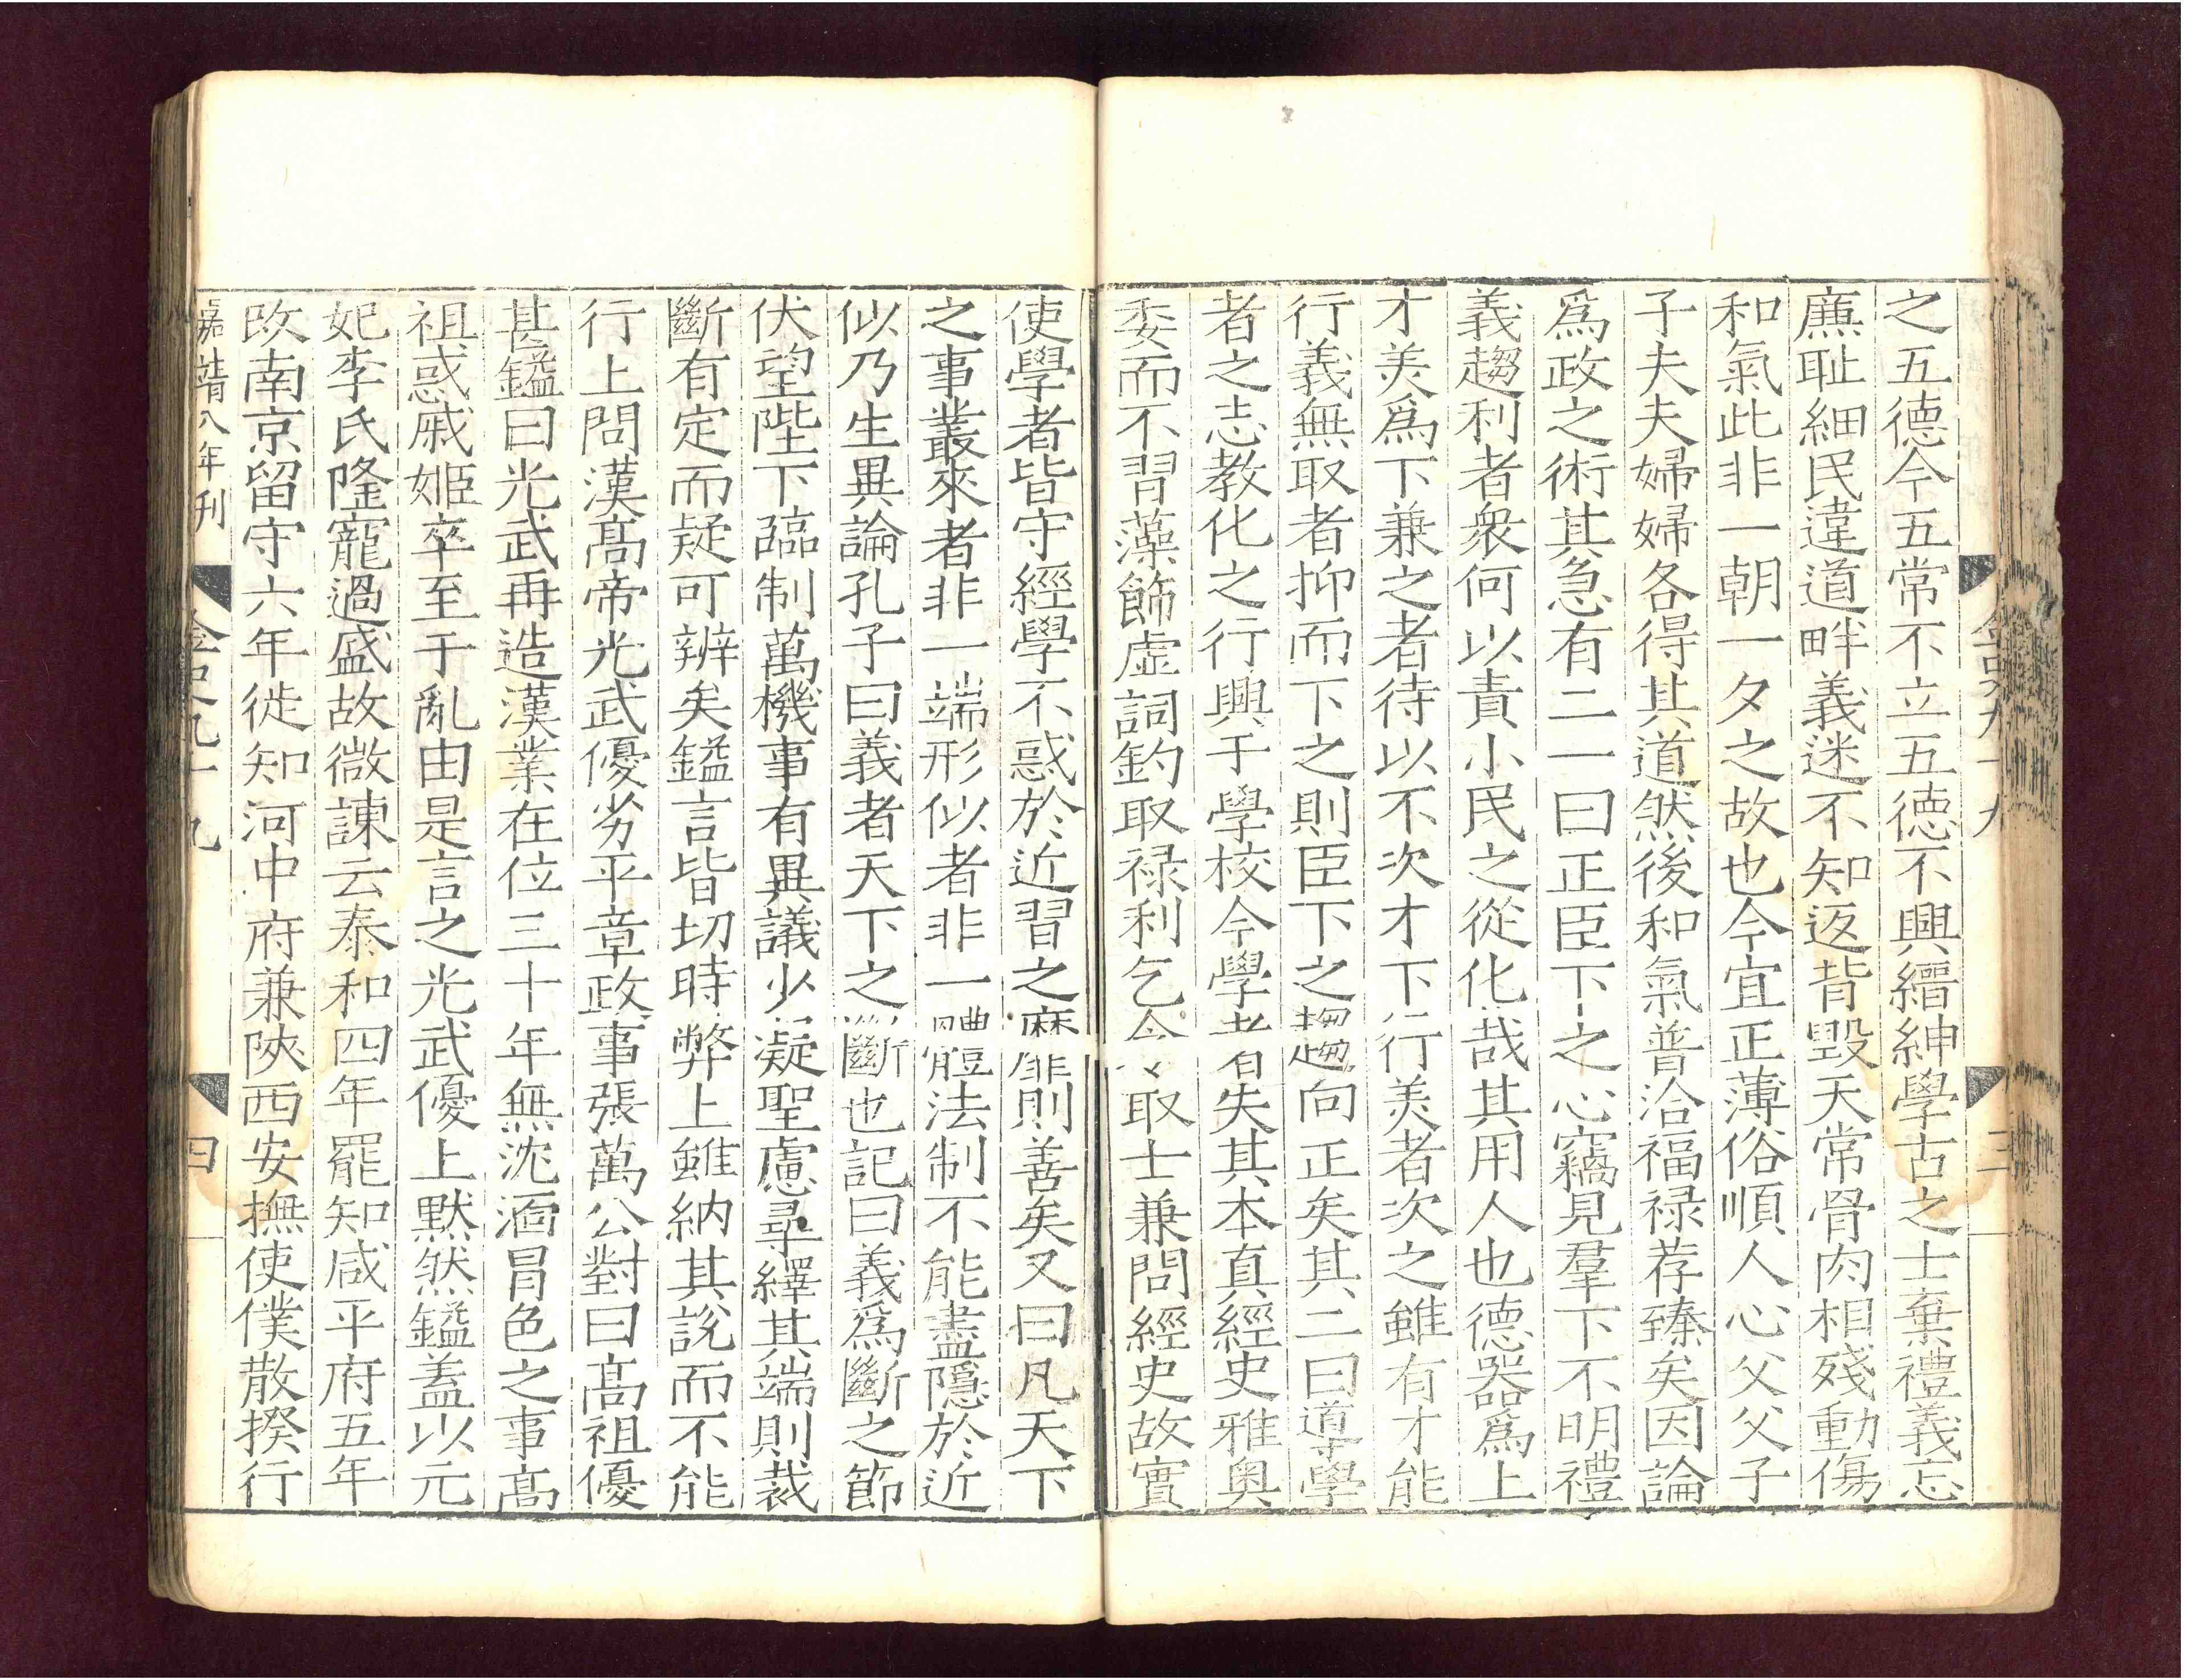 之五德今五常不立五德不興縉紳學古之士棄禮義忘
廉耻細民違道畔義迷不知返背毀天常骨肉相殘動傷
和氣此非一朝一夕之故也今宜正薄俗順人心父父子
子夫夫婦婦各得其道然後和氣普洽福禄荐臻矣因論
爲政之術其急有二一曰正臣下之心竊見羣下不明禮
義趨利者衆何以責小民之從化哉其用人也德器爲上
才羙爲下兼之者待以不次才下行羙者次之雖有才能
行義無取者抑而下之則臣下之趨向正矣其二曰導學
者之志教化之行興于學校今學者失其本真經史雅奥
委而不習藻飾虚詞釣取禄利乞令取士兼問經史故實
使學者皆守經學不惑於近習之靡則善矣又曰凡天下
之事叢來者非一端形似者非一體法制不能盡隱於近
似乃生異論孔子曰義者天下之斷也記曰義爲斷之節
伏望陛下臨制萬機事有異議少凝聖慮尋繹其端則裁
斷有定而疑可辨矣鎰言皆切時弊上雖納其說而不能
行上問漢髙帝光武優劣平章政事張萬公對曰髙祖優
甚鎰曰光武再造漢業在位三十年無沈湎冒色之事髙
祖惑戚姬卒至于亂由是言之光武優上默然鎰蓋以元
妃李氏隆寵過盛故微諫云泰和四年罷知咸平府五年
改南京留守六年徙知河中府兼陝西安撫使僕散揆行
嘉靖八年刊 金史九十九 四